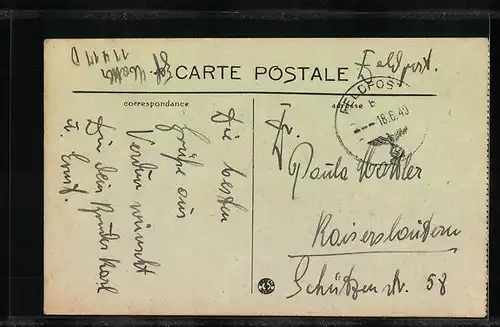 Feldpost.
CARTE POSTALE
correspondance
adresse
FELDPOST
b
16.6.40
Die besten
Grüße aus
Verdun wünscht
Dir dein Bruder Karl
u. Ernst.
Fr.
Paula Wattler
Kaiserslautern
Schützenstr. 58